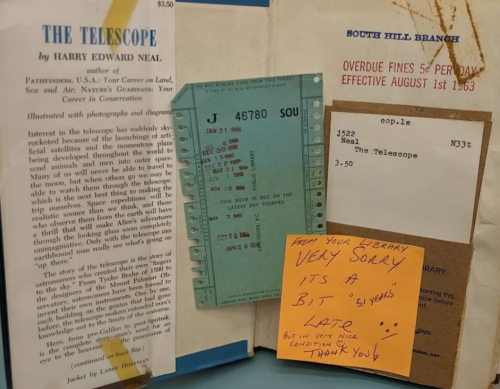 $3.50
THE TELESCOPE
by HARRY EDWARD NEAL
author of
PATHFINDERS, U.S.A.: Your Career on Land,
Sea and Air; NATURE'S GUARDIANS: Your
Career in Conservation
Illustrated with photographs and diagrams
Interest in the telescope has suddenly sky-
rocketed because of the launchings of arti-
ficial satellites and the momentous plans
being developed throughout the world to
send animals and men into outer space.
Many of us will never be able to travel to
the moon, but when others do we may be
able to watch them through the telescope,
which is the next best thing to making the
trip ourselves. Space expeditions will be
realistic sooner than we think, and those
who observe them from the earth will have
a thrill that will make Alice's adventures
through the looking glass seem completely
unimaginative. Only with the telescope can
earthbound man really see what's going on
"up there."
The story of the telescope is the story of
astronomers who created their own "fingers
to the sky." From Tycho Brahe of 1590 to
the designers of the Mount Palomar Ob-
servatory, astronomers have been forced to
invent their own instruments. One by one
each building on the genius that had gone
before, the telescope makers extended man's
knowledge out to the limits of the universe.
Here, from pre-Galileo to post-Sputnik,
is the complete story of man's need for an
eye to the heavens
(continued on back flap)
Jacket by LARRY HOFFMAN
J 46780 SOU
JAN 31 1966
DEC 30
MAY 31
NOV 15
THIS BOOK IS DUE ON THE
LATEST DATE STAMPED
MAY 3
PUBLIC LIBRARY
SOUTH HILL BRANCH
OVERDUE FINES 5¢ PER DAY
EFFECTIVE AUGUST 1st 1963
cop.1e
J522
Neal N33t
The Telescope
3.50
FROM YOUR LIBRARY
VERY SORRY
ITS A
BIT "51 YEARS"
LATE
BUT IN VERY NICE
CONDITION
THANK YOU